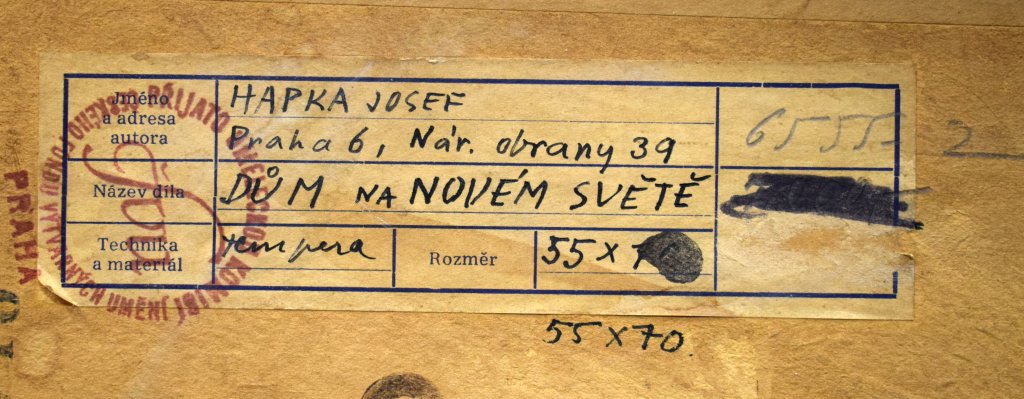 Jméno
a adresa
autora
HAPKA JOSEF
Praha 6, Nár. obrany 39
Název díla
DŮM NA NOVÉM SVĚTĚ
Technika
a materiál
tempera
Rozměr
55 x 7
6555-
2
55 x 70.
PŘIJATO UMĚLECKOU KOMISÍ
ČESKÉHO FONDU VÝTVARNÝCH UMĚNÍ
PRAHA